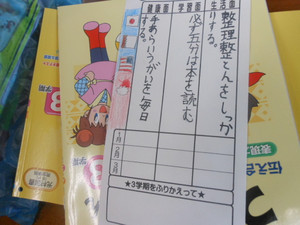 生活面
整理整とんをしっか
りする。
学習面
必ず五分は本を読む
健康面
手あらいうがいを毎日
する。
1月
2月
3月
★3学期をふりかえって★
伝え合
表現